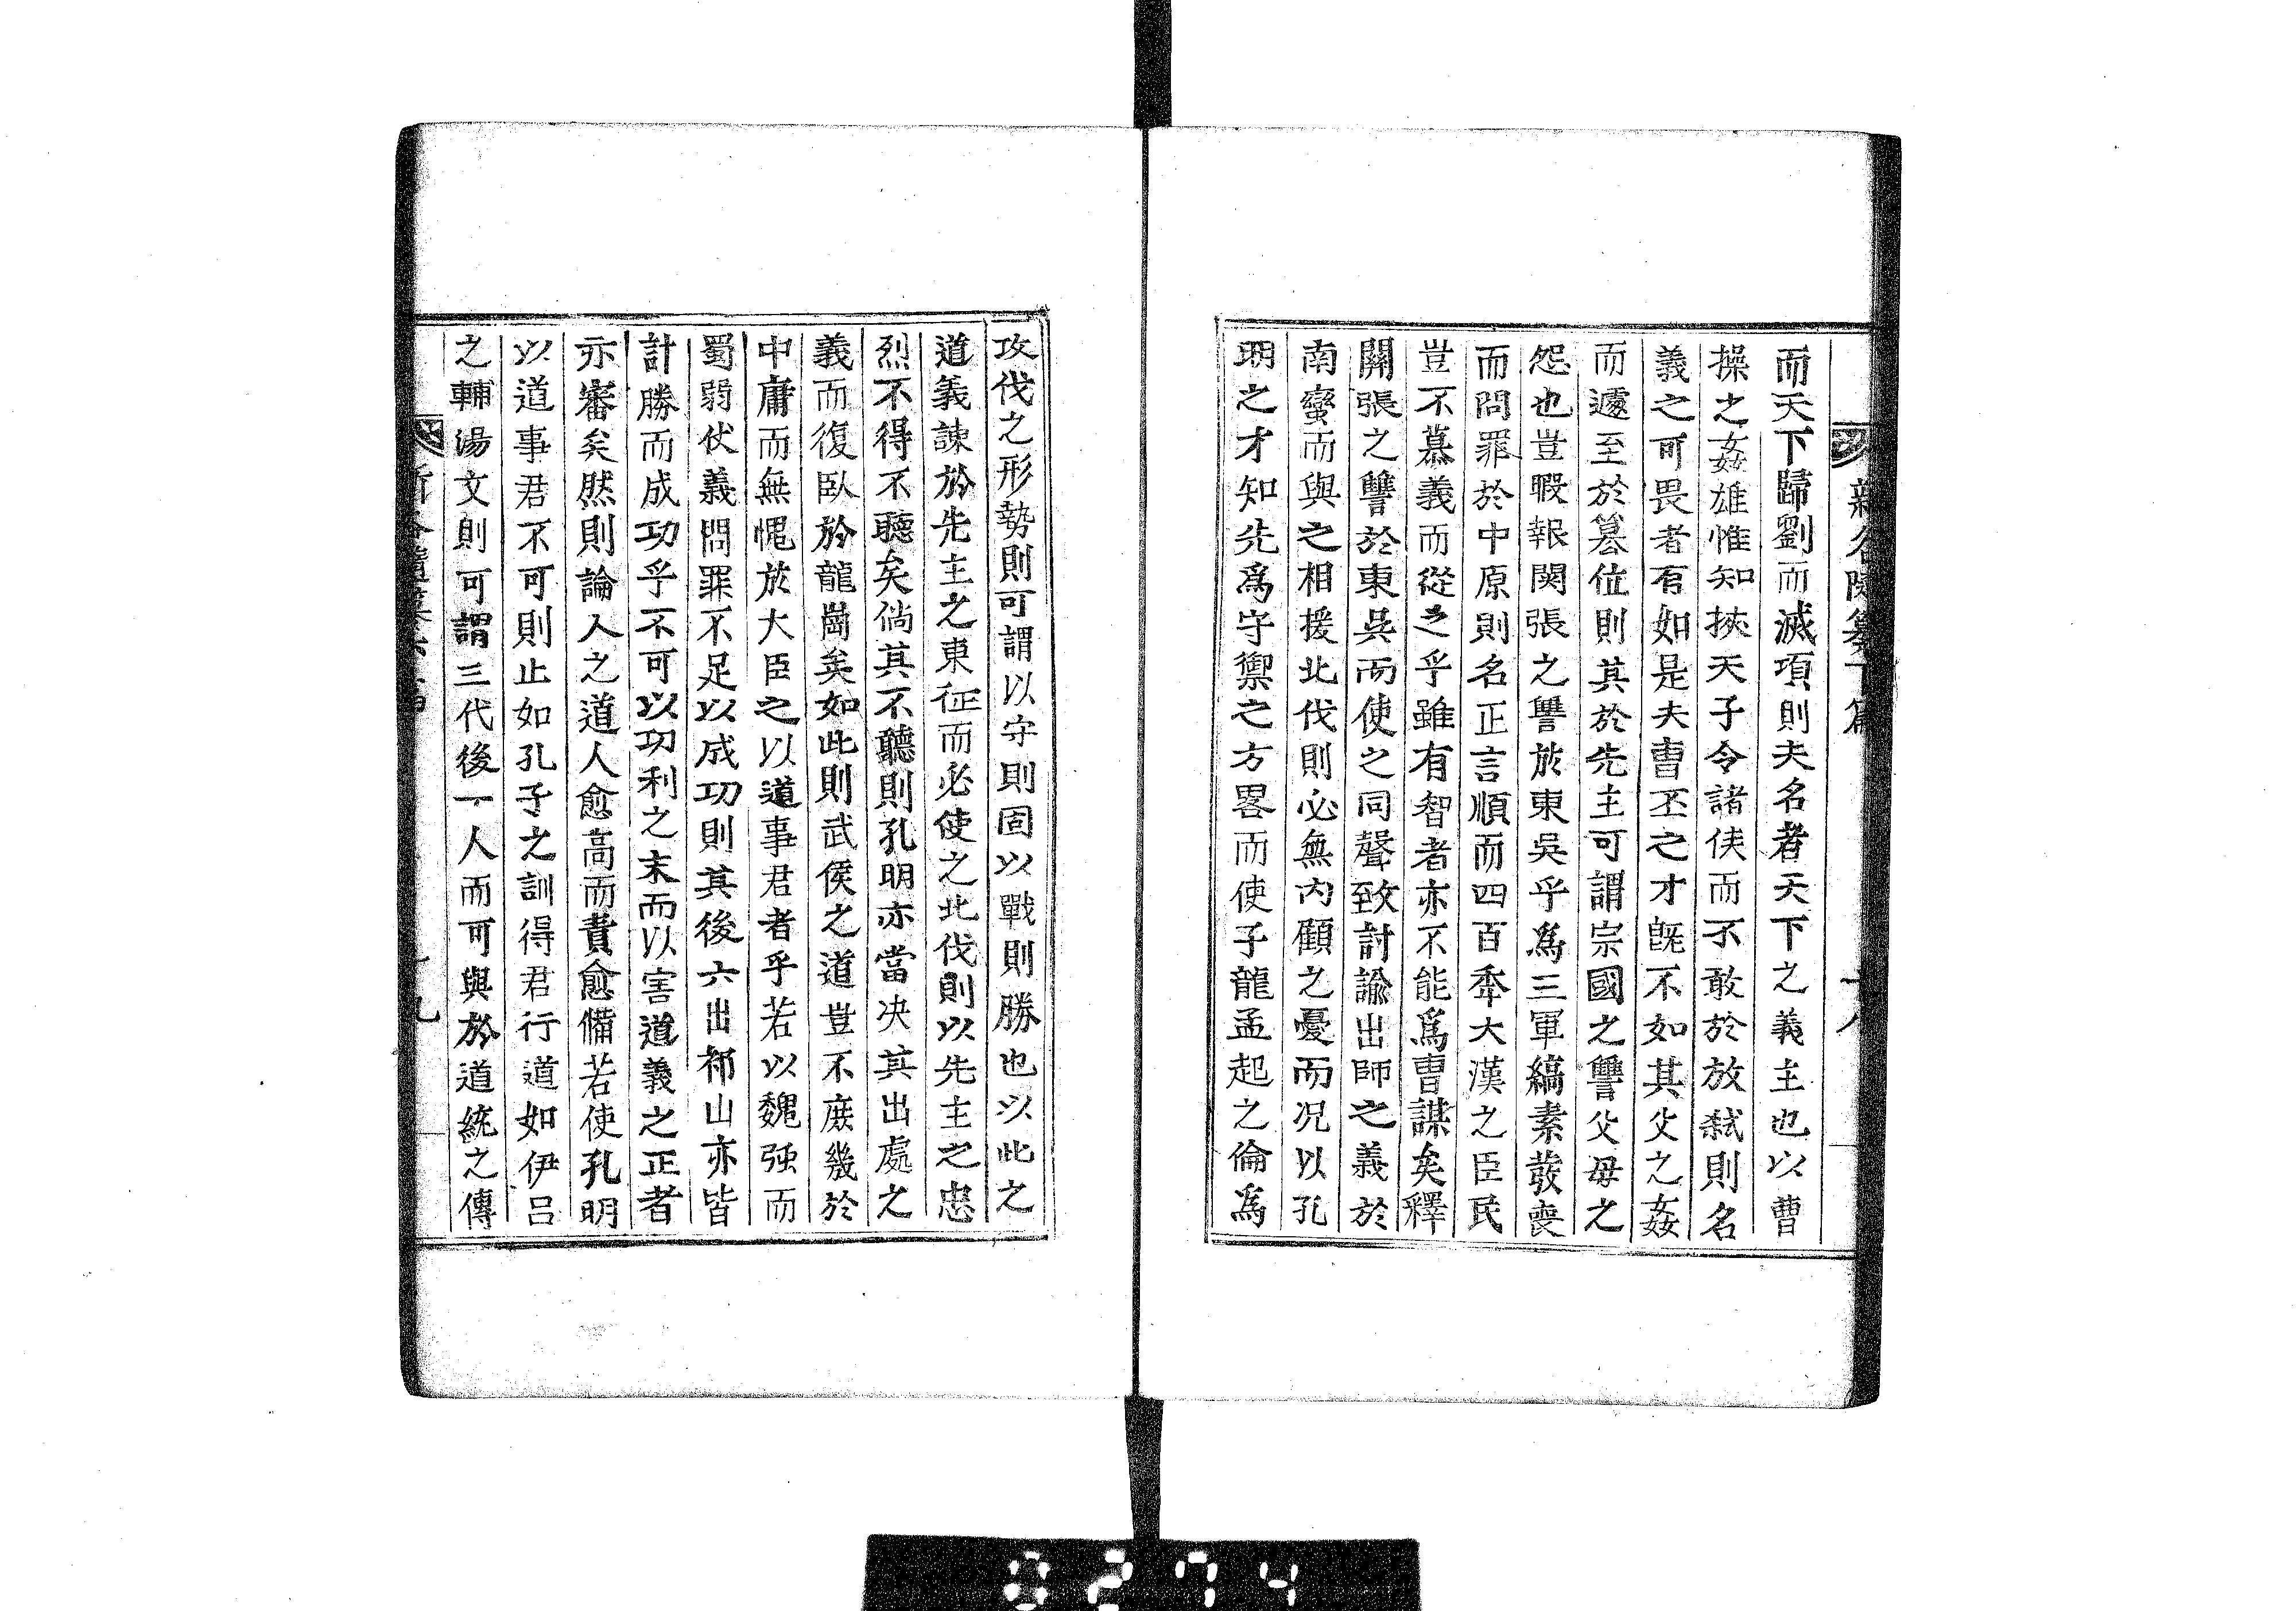 而天下歸劉而滅項則夫名者天下之義主也以曹
操之姦雄惟知挾天子令諸侯而不敢於放弑則名
義之可畏者有如是夫曹丕之才旣不如其父之姦
而遽至於簒位則其於先主可謂宗國之讐父母之
怨也豈暇報関張之讐於東吳乎爲三軍縞素發喪
而問罪於中原則名正言順而四百秊大漢之臣民
豈不慕義而從之乎雖有智者亦不能爲曹謀矣釋
關張之讐於東吳而使之同聲致討諭出師之義於
南蠻而與之相援北伐則必無內顧之憂而况以孔
明之才知先爲守禦之方畧而使子龍孟起之倫爲
攻伐之形勢則可謂以守則固以戰則勝也以此之
道義諫於先主之東征而必使之北伐則以先主之忠
烈不得不聽矣倘其不聽則孔明亦當决其出處之
義而復臥於龍崗矣如此則武侯之道豈不庶幾於
中庸而無愧於大臣之以道事君者乎若以魏强而
蜀弱伏義問罪不足以成功則其後六出祁山亦皆
計勝而成功乎不可以功利之末而以害道義之正者
亦審矣然則論人之道人愈高而責愈備若使孔明
以道事君不可則止如孔子之訓得君行道如伊呂
之輔湯文則可謂三代後一人而可與於道統之傳
8274